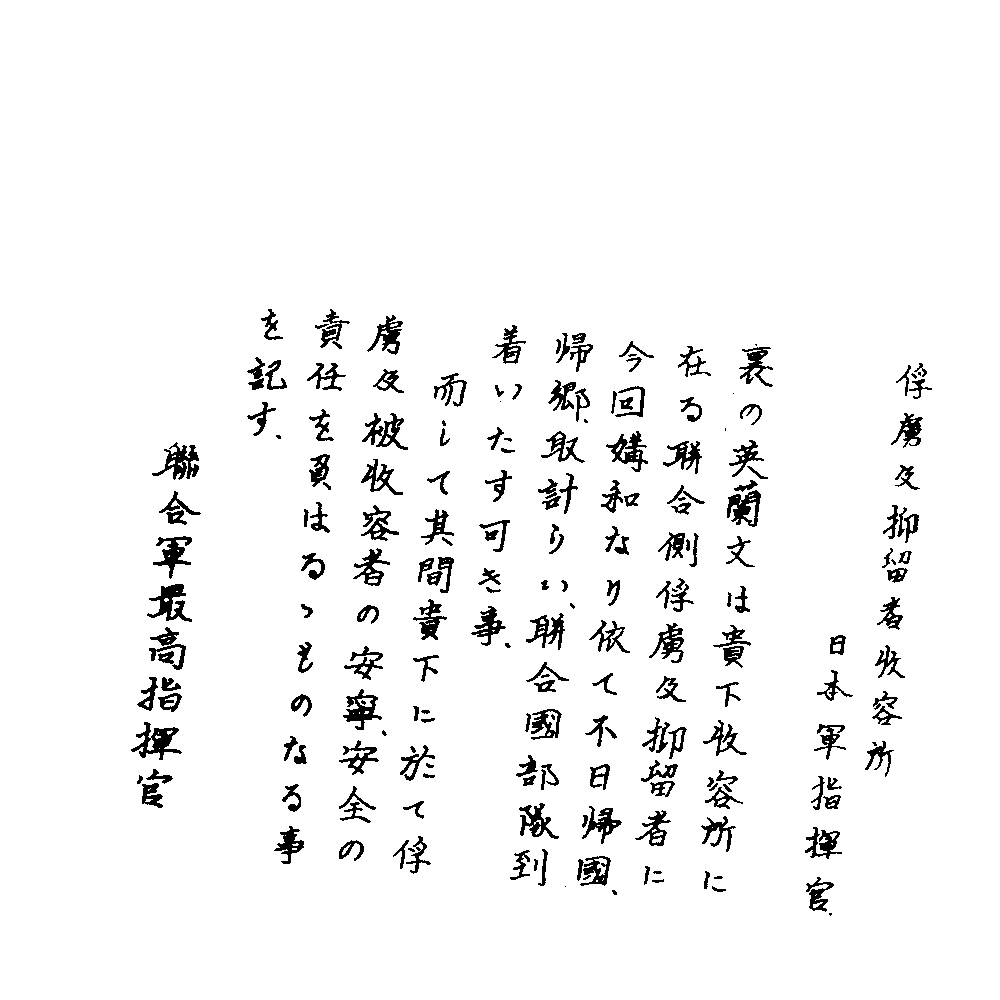 俘虜及抑留者收容所
日本軍指揮官
裏の英蘭文は貴下收容所に
在る聯合側俘虜及抑留者に
今回媾和なり依て不日帰國、
帰郷、取計らい、聯合國部隊到
着いたす可き事、
而して其間貴下に於て俘
虜及被收容者の安寧、安全の
責任を負はるゝものなる事
を記す、
聯合軍最高指揮官